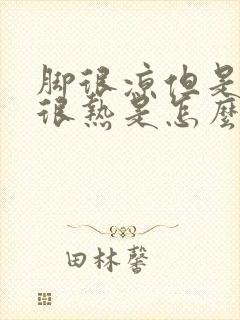 脚很凉但是
很热是怎麼
田林馨